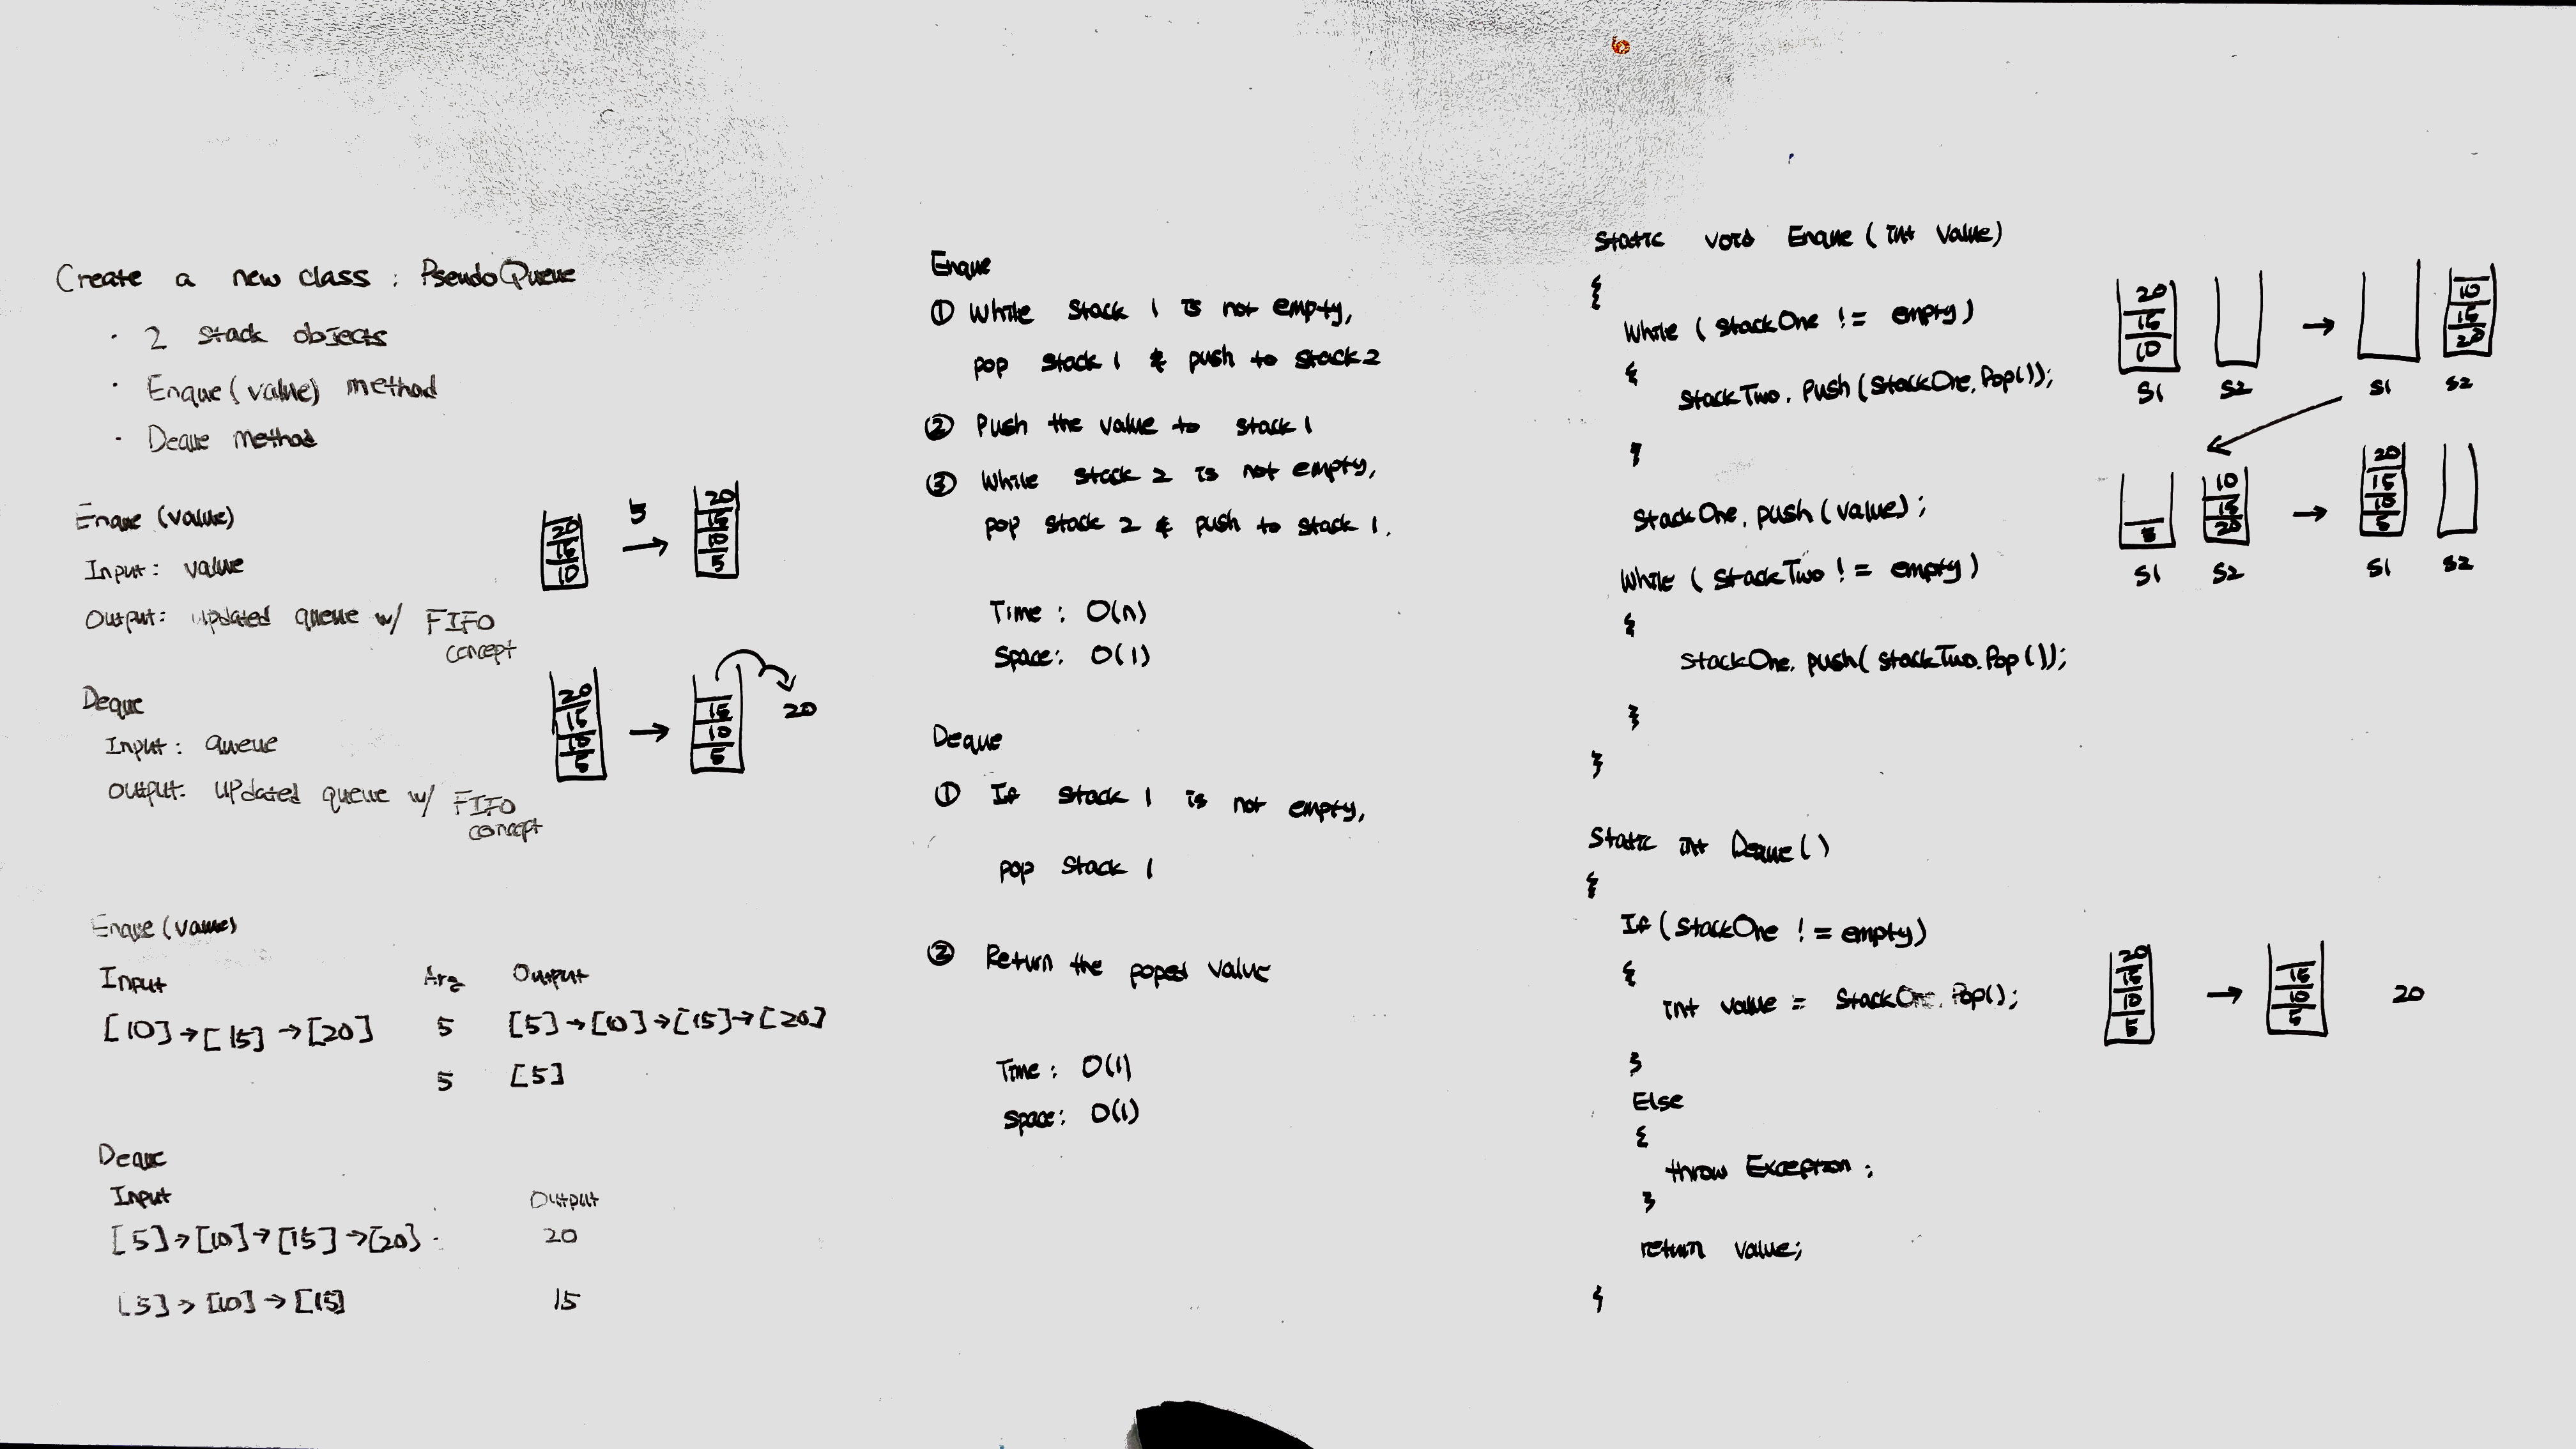 Create a new class : PseudoQueue
· 2 stack objects
· Enque(value) method
· Deque method
Enque (value)
Input: value
Output: updated queue w/ FIFO
concept
20
15
10
5
→
20
15
10
5
Deque
Input: queue
Output: updated queue w/ FIFO
concept
20
15
10
5
→
15
10
5
20
Enque (value)
Input Arg Output
[10]→[15]→[20] 5 [5]→[10]→[15]→[20]
5 [5]
Deque
Input Output
[5]→[10]→[15]→[20] 20
[5]→[10]→[15] 15
Enque
① While stack 1 is not empty,
pop stack 1 & push to stack 2
② Push the value to stack 1
③ While stack 2 is not empty,
pop stack 2 & push to stack 1.
Time : O(n)
Space: O(1)
Deque
① If stack 1 is not empty,
pop stack 1
② Return the poped value
Time : O(1)
Space: O(1)
Static void Enque (int value)
{
While (stackOne != empty)
{
stackTwo.Push(stackOne.Pop());
}
StackOne.push(value);
While (stackTwo != empty)
{
stackOne.push(stackTwo.Pop());
}
}
Static int Deque()
{
If (stackOne != empty)
{
int value = stackOne.Pop();
}
Else
{
throw Exception;
}
return value;
}
20
15
10
→
10
15
20
S1 S2 S1 S2
5
10
15
20
→
20
15
10
5
S1 S2 S1 S2
20
15
10
5
→
15
10
5
20